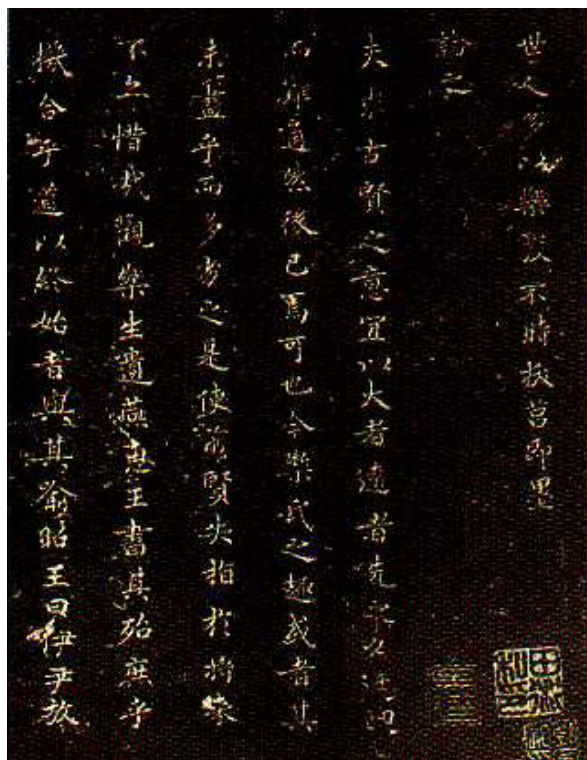 世人多以樂毅不時拔莒即墨
論之
夫求古賢之意宜以大者遠者先之必迂迴
而難通然後已焉可也今樂氏之趣或者其
未盡乎而多劣之是使前賢失指於將來
不亦惜哉觀樂生遺燕惠王書其殆庶乎
機合乎道以終始者與其喻昭王曰伊尹放